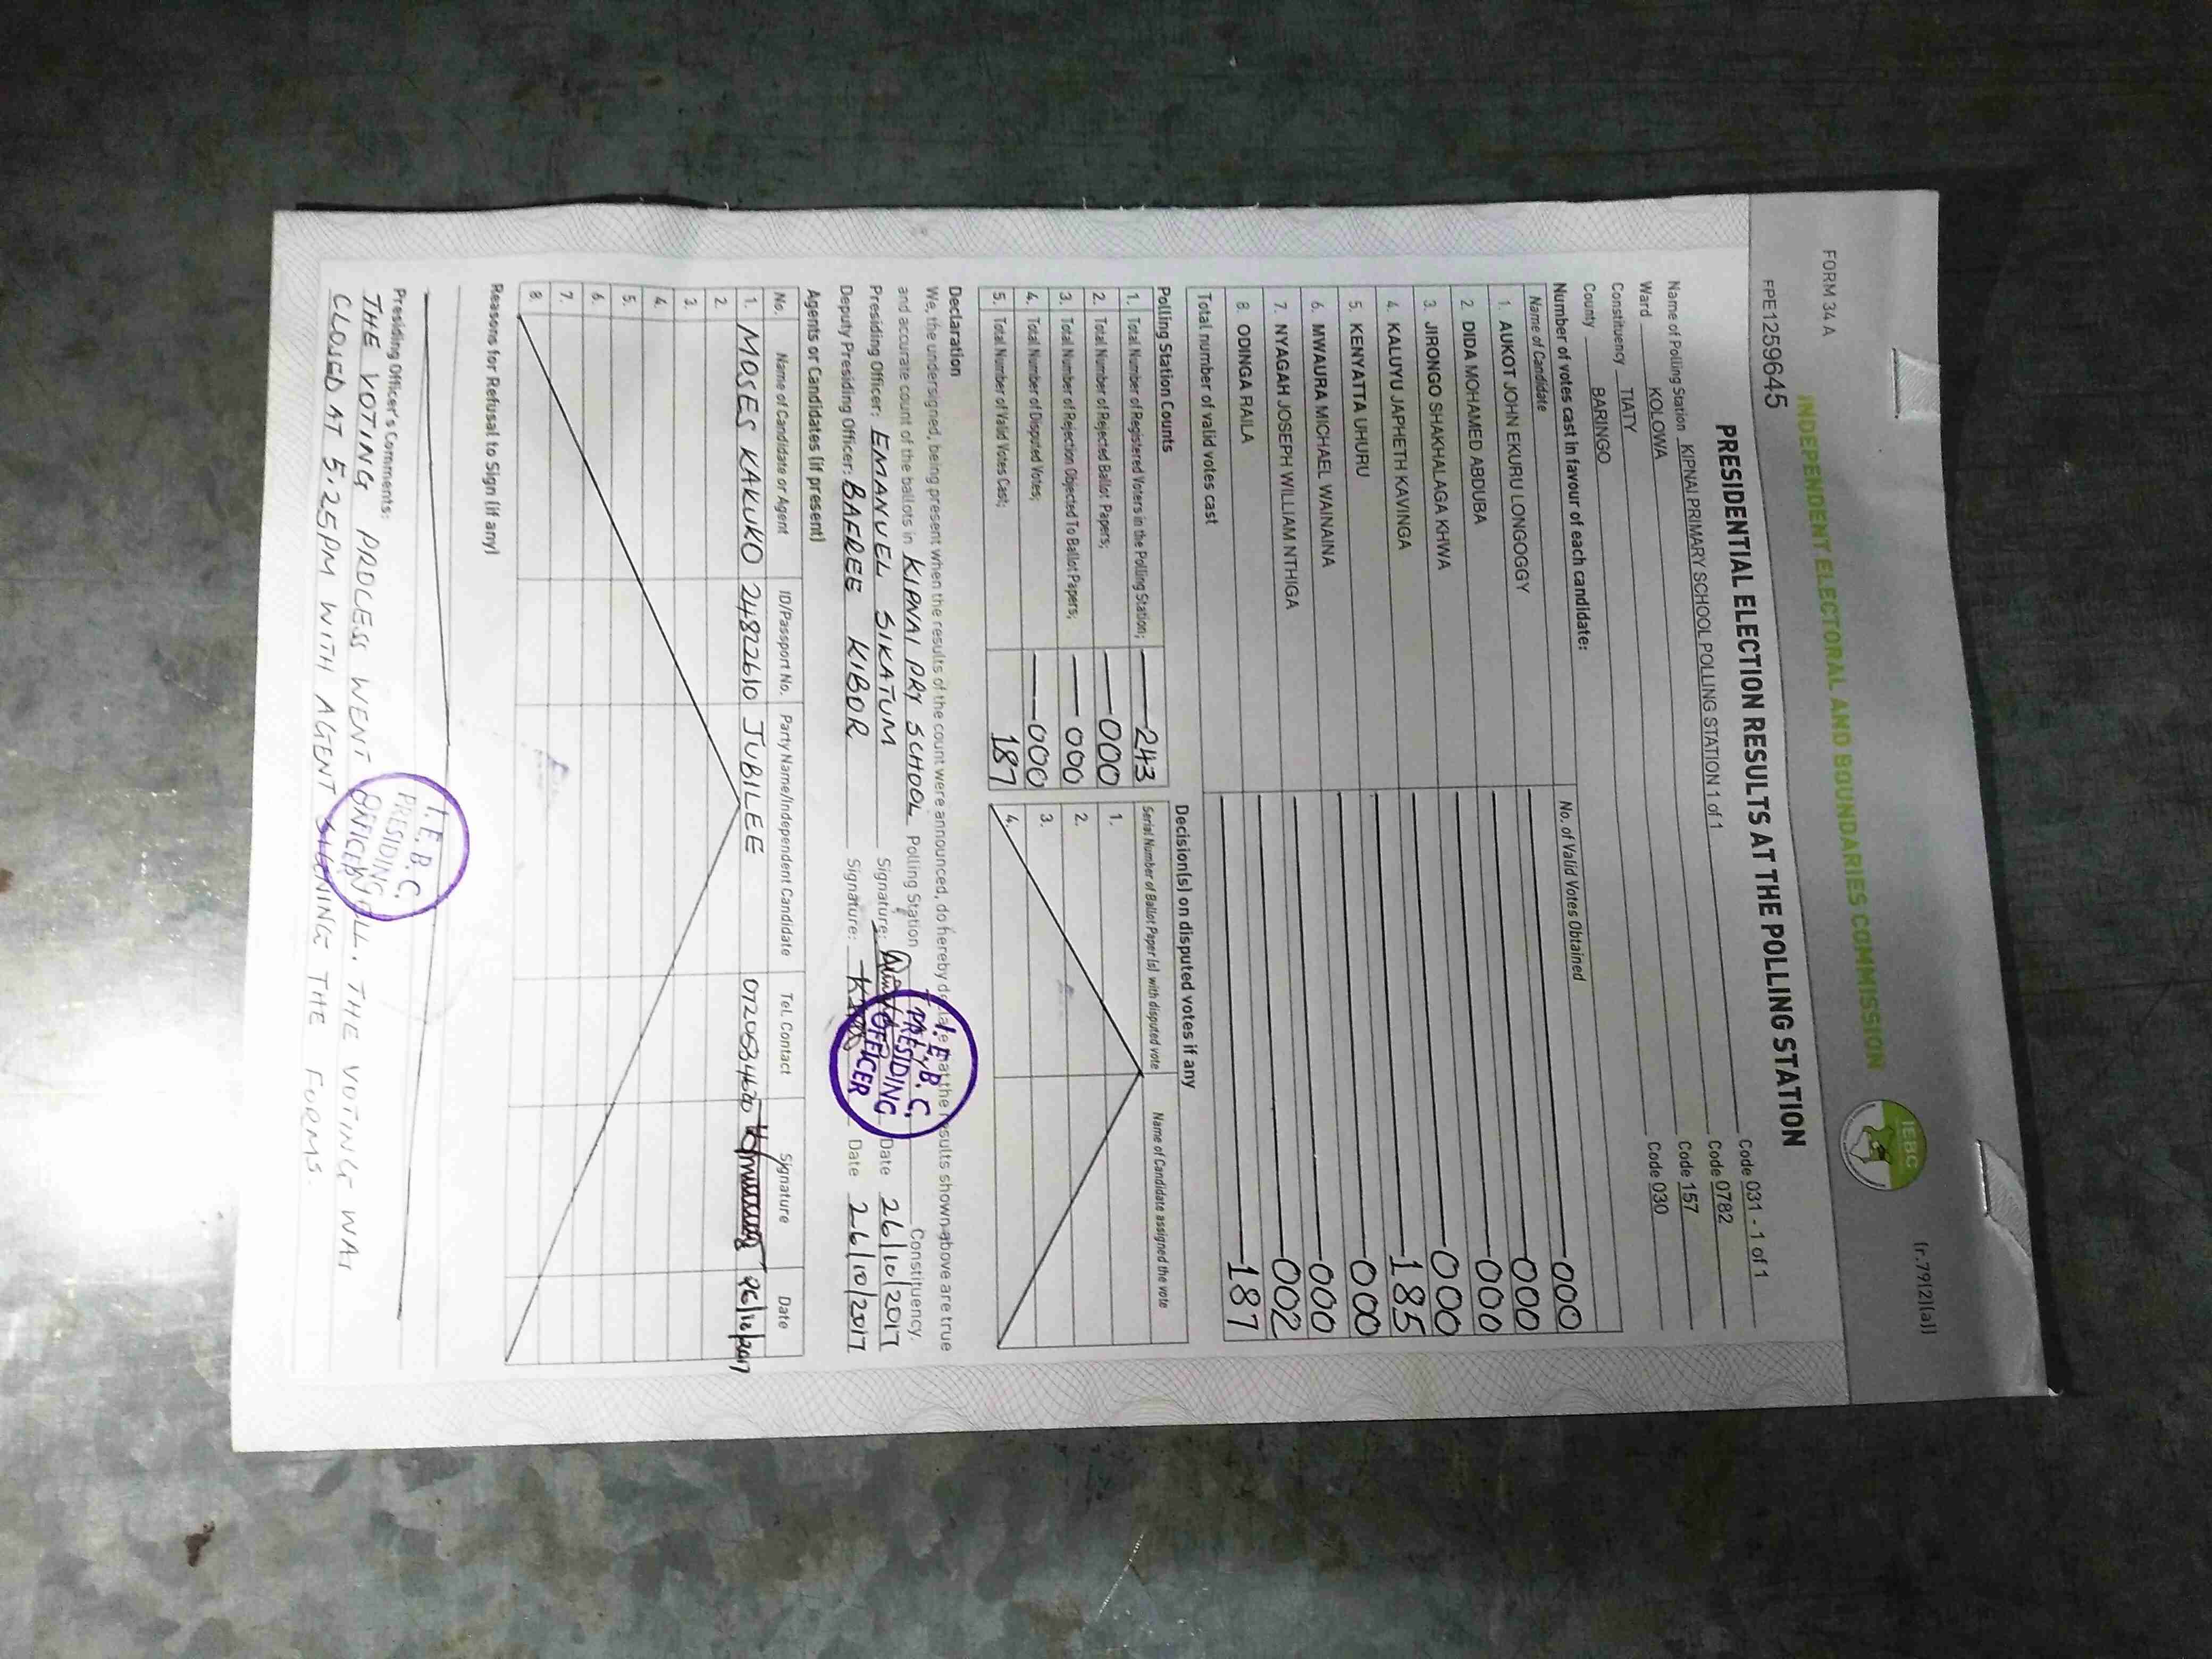 FORM 34 A
(r.79(2)(a))
INDEPENDENT ELECTORAL AND BOUNDARIES COMMISSION
IEBC
FPE1259645
PRESIDENTIAL ELECTION RESULTS AT THE POLLING STATION
Name of Polling Station KIPNAI PRIMARY SCHOOL POLLING STATION 1 of 1 Code 031 - 1 of 1
Ward KOLOWA Code 0782
Constituency TIATY Code 157
County BARINGO Code 030
Number of votes cast in favour of each candidate:
Name of Candidate No. of Valid Votes Obtained
1. AUKOT JOHN EKURU LONGOGGY 000
2. DIDA MOHAMED ABDUBA 000
3. JIRONGO SHAKHALAGA KHWA 000
4. KALUYU JAPHETH KAVINGA 000
5. KENYATTA UHURU 185
6. MWAURA MICHAEL WAINAINA 000
7. NYAGAH JOSEPH WILLIAM NTHIGA 000
8. ODINGA RAILA 002
Total number of valid votes cast 187
Polling Station Counts
1. Total Number of Registered Voters in the Polling Station; 243
2. Total Number of Rejected Ballot Papers; 000
3. Total Number of Rejection Objected To Ballot Papers; 000
4. Total Number of Disputed Votes; 000
5. Total Number of Valid Votes Cast; 187
Decision(s) on disputed votes if any
Serial Number of Ballot Paper(s) with disputed vote Name of Candidate assigned the vote
1.
2.
3.
4.
Declaration
We, the undersigned, being present when the results of the count were announced, do hereby declare that the results shown above are true
and accurate count of the ballots in KIPNAI PRY SCHOOL Polling Station TIATY Constituency.
Presiding Officer: EMANUEL SIKATUM Signature: Date 26/10/2017
Deputy Presiding Officer: BAEREE KIBOR Signature: Date 26/10/2017
I.E.B.C.
PRESIDING
OFFICER
Agents or Candidates (if present)
No. Name of Candidate or Agent ID/Passport No. Party Name/Independent Candidate Tel. Contact Signature Date
1. MOSES KAKUKO 24822610 JUBILEE 0720584620 26/10/2017
2.
3.
4.
5.
6.
7.
8.
Reasons for Refusal to Sign (if any)
Presiding Officer's Comments:
THE VOTING PROCESS WENT ON WELL. THE VOTING WAS
CLOSED AT 5.25PM WITH AGENT SIGNING THE FORMS.
I.E.B.C.
PRESIDING
OFFICER